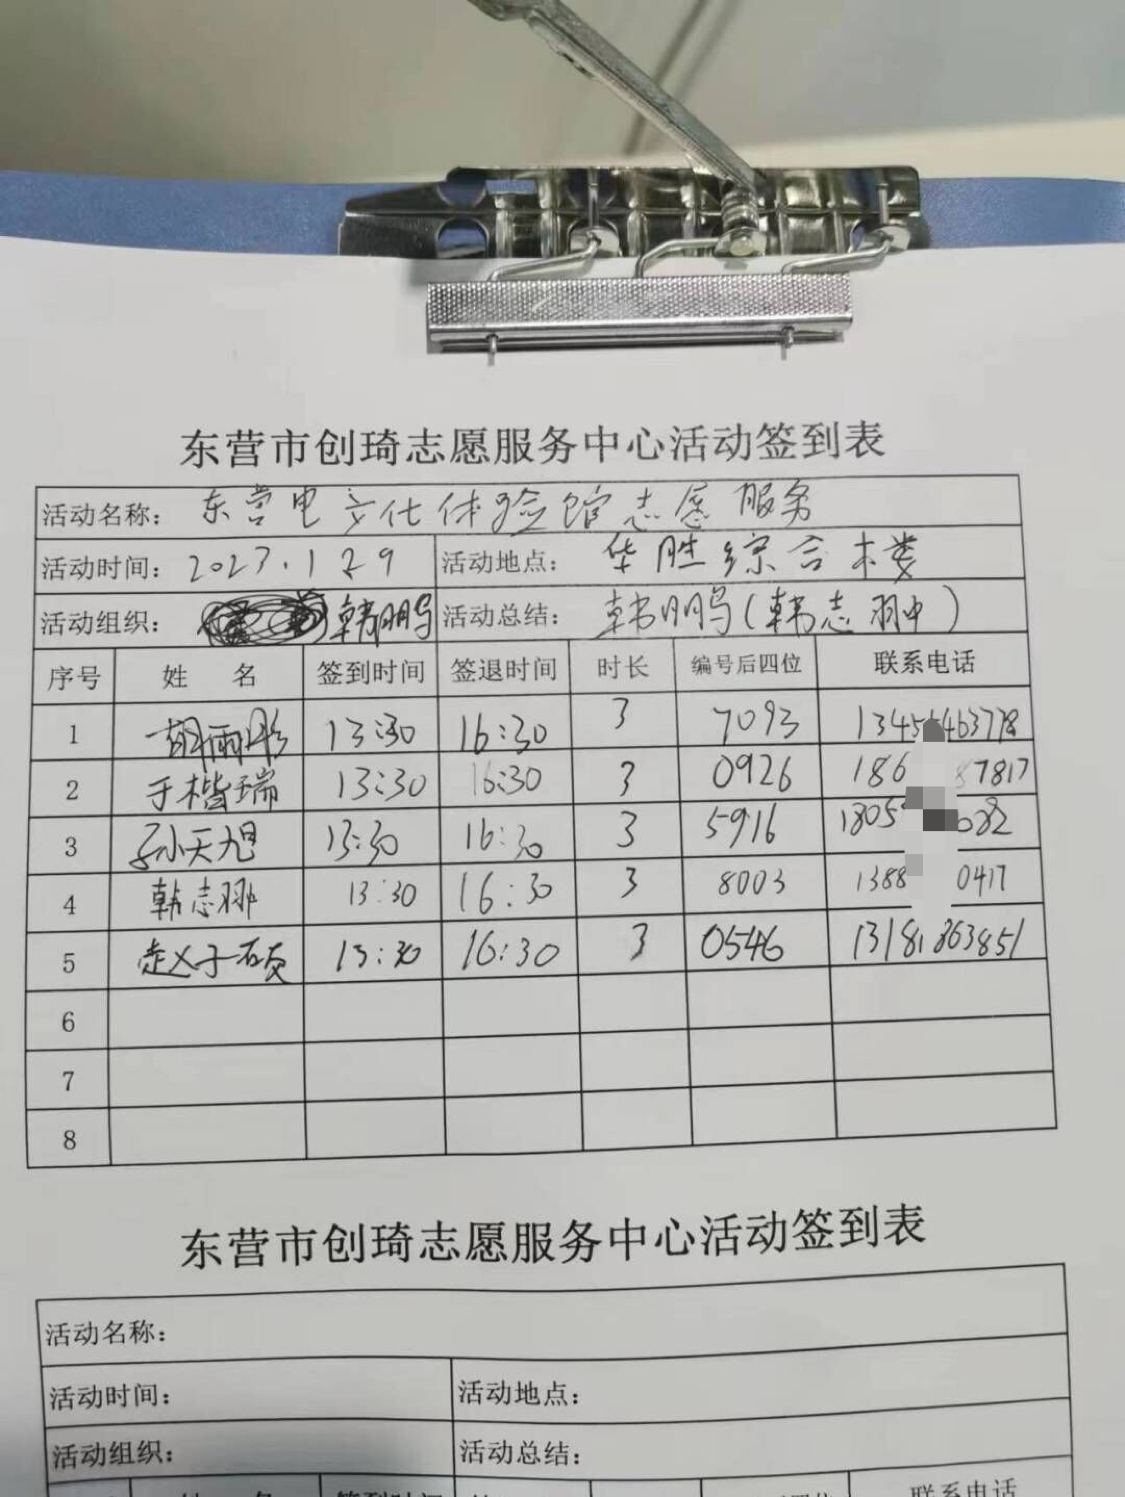 东营市创琦志愿服务中心活动签到表
活动名称: 东营电文化体验馆志愿服务
活动时间: 2023.1 29 活动地点: 华胜综合楼
活动组织: 韩鹏 活动总结: 韩鹏(韩志翀)
序号 姓 名 签到时间 签退时间 时长 编号后四位 联系电话
1 胡雨彤 13:30 16:30 3 7093
2 于楷瑞 13:30 16:30 3 0926 186 87817
3 孙天旭 13:30 16:30 3 5916 1805 082
4 韩志翀 13:30 16:30 3 8003 1388 0417
5 赵子硕 13:30 16:30 3 0546 13181863851
6
7
8
东营市创琦志愿服务中心活动签到表
活动名称:
活动时间: 活动地点:
活动组织: 活动总结:
联系电话